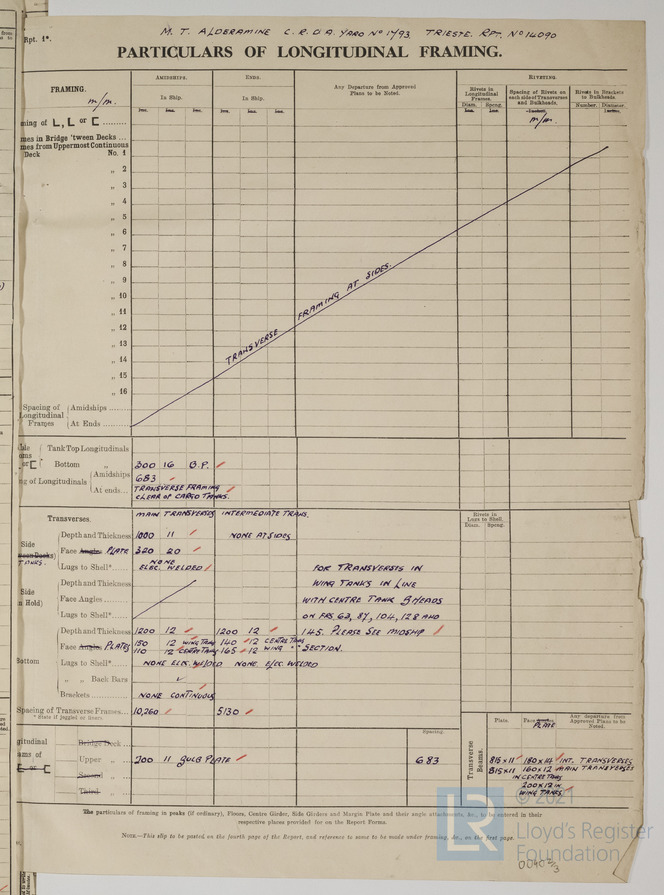 Rpt. 1*.
M. T. ALDERAMINE C. R. D A. YARD No 1793 TRIESTE. RPT. No 14090
PARTICULARS OF LONGITUDINAL FRAMING.
FRAMING.
m/m.
AMIDSHIPS.
In Ship.
ENDS.
In Ship.
Any Departure from Approved Plans to be Noted.
RIVETING.
Rivets in Longitudinal Frames.
Diam. Spcng.
Spacing of Rivets on each side of Transverses and Bulkheads.
m/m
Rivets in Brackets to Bulkheads.
Number. Diameter.
ming of L, L or [
mes in Bridge 'tween Decks ...
mes from Uppermost Continuous
Deck No. 1
„ 2
„ 3
„ 4
„ 5
„ 6
„ 7
„ 8
„ 9
„ 10
„ 11
„ 12
„ 13
„ 14
„ 15
„ 16
TRANSVERSE FRAMING AT SIDES.
Spacing of Longitudinal Frames
Amidships
At Ends
Tank Top Longitudinals
Bottom „ 300 16 B.P.
g of Longitudinals
Amidships 683
At ends... TRANSVERSE FRAMING
CLEAR OF CARGO TANKS.
Transverses.
MAIN TRANSVERSES INTERMEDIATE TRANS.
Rivets in Lugs to Shell.
Diam. Spcng.
Side
TANKS.
Depth and Thickness 1000 11 NONE AT SIDES
Face Angle. PLATE 320 20
Lugs to Shell* NONE
ELEC. WELDED
Side
n Hold)
Depth and Thickness
Face Angles
Lugs to Shell*
FOR TRANSVERSES IN
WING TANKS IN LINE
WITH CENTRE TANK BHEADS
ON FRS 63, 87, 104, 128 AND
145. PLEASE SEE MIDSHIP
SECTION.
Bottom
Depth and Thickness 1200 12 1200 12
Face Angles PLATES 150 12 WING TANK 140 12 CENTRE TANK
110 12 CENTRE TANK 165 12 WING " "
Lugs to Shell* NONE ELEC. WELDED NONE ELEC. WELDED
„ „ Back Bars
Brackets NONE CONTINUOUS
Spacing of Transverse Frames 10,260 5130
* State if joggled or liners.
gitudinal
ams of
Bridge Deck
Upper „ 200 11 BULB PLATE
Second „
Third „
Spacing.
683
Transverse Beams.
Plate. Face PLATE
Any departure from Approved Plans to be Noted.
815 x 11 180 x 14 INT. TRANSVERSES
815 x 11 160 x 12 MAIN TRANSVERSES
IN CENTRE TANKS
200 x 12 IN
WING TANKS
The particulars of framing in peaks (if ordinary), Floors, Centre Girder, Side Girders and Margin Plate and their angle attachments, &c., to be entered in their
respective places provided for on the Report Forms.
NOTE.—This slip to be pasted on the fourth page of the Report, and reference to same to be made under framing, &c., on the first page.
© 2021
LR
Lloyd's Register
Foundation